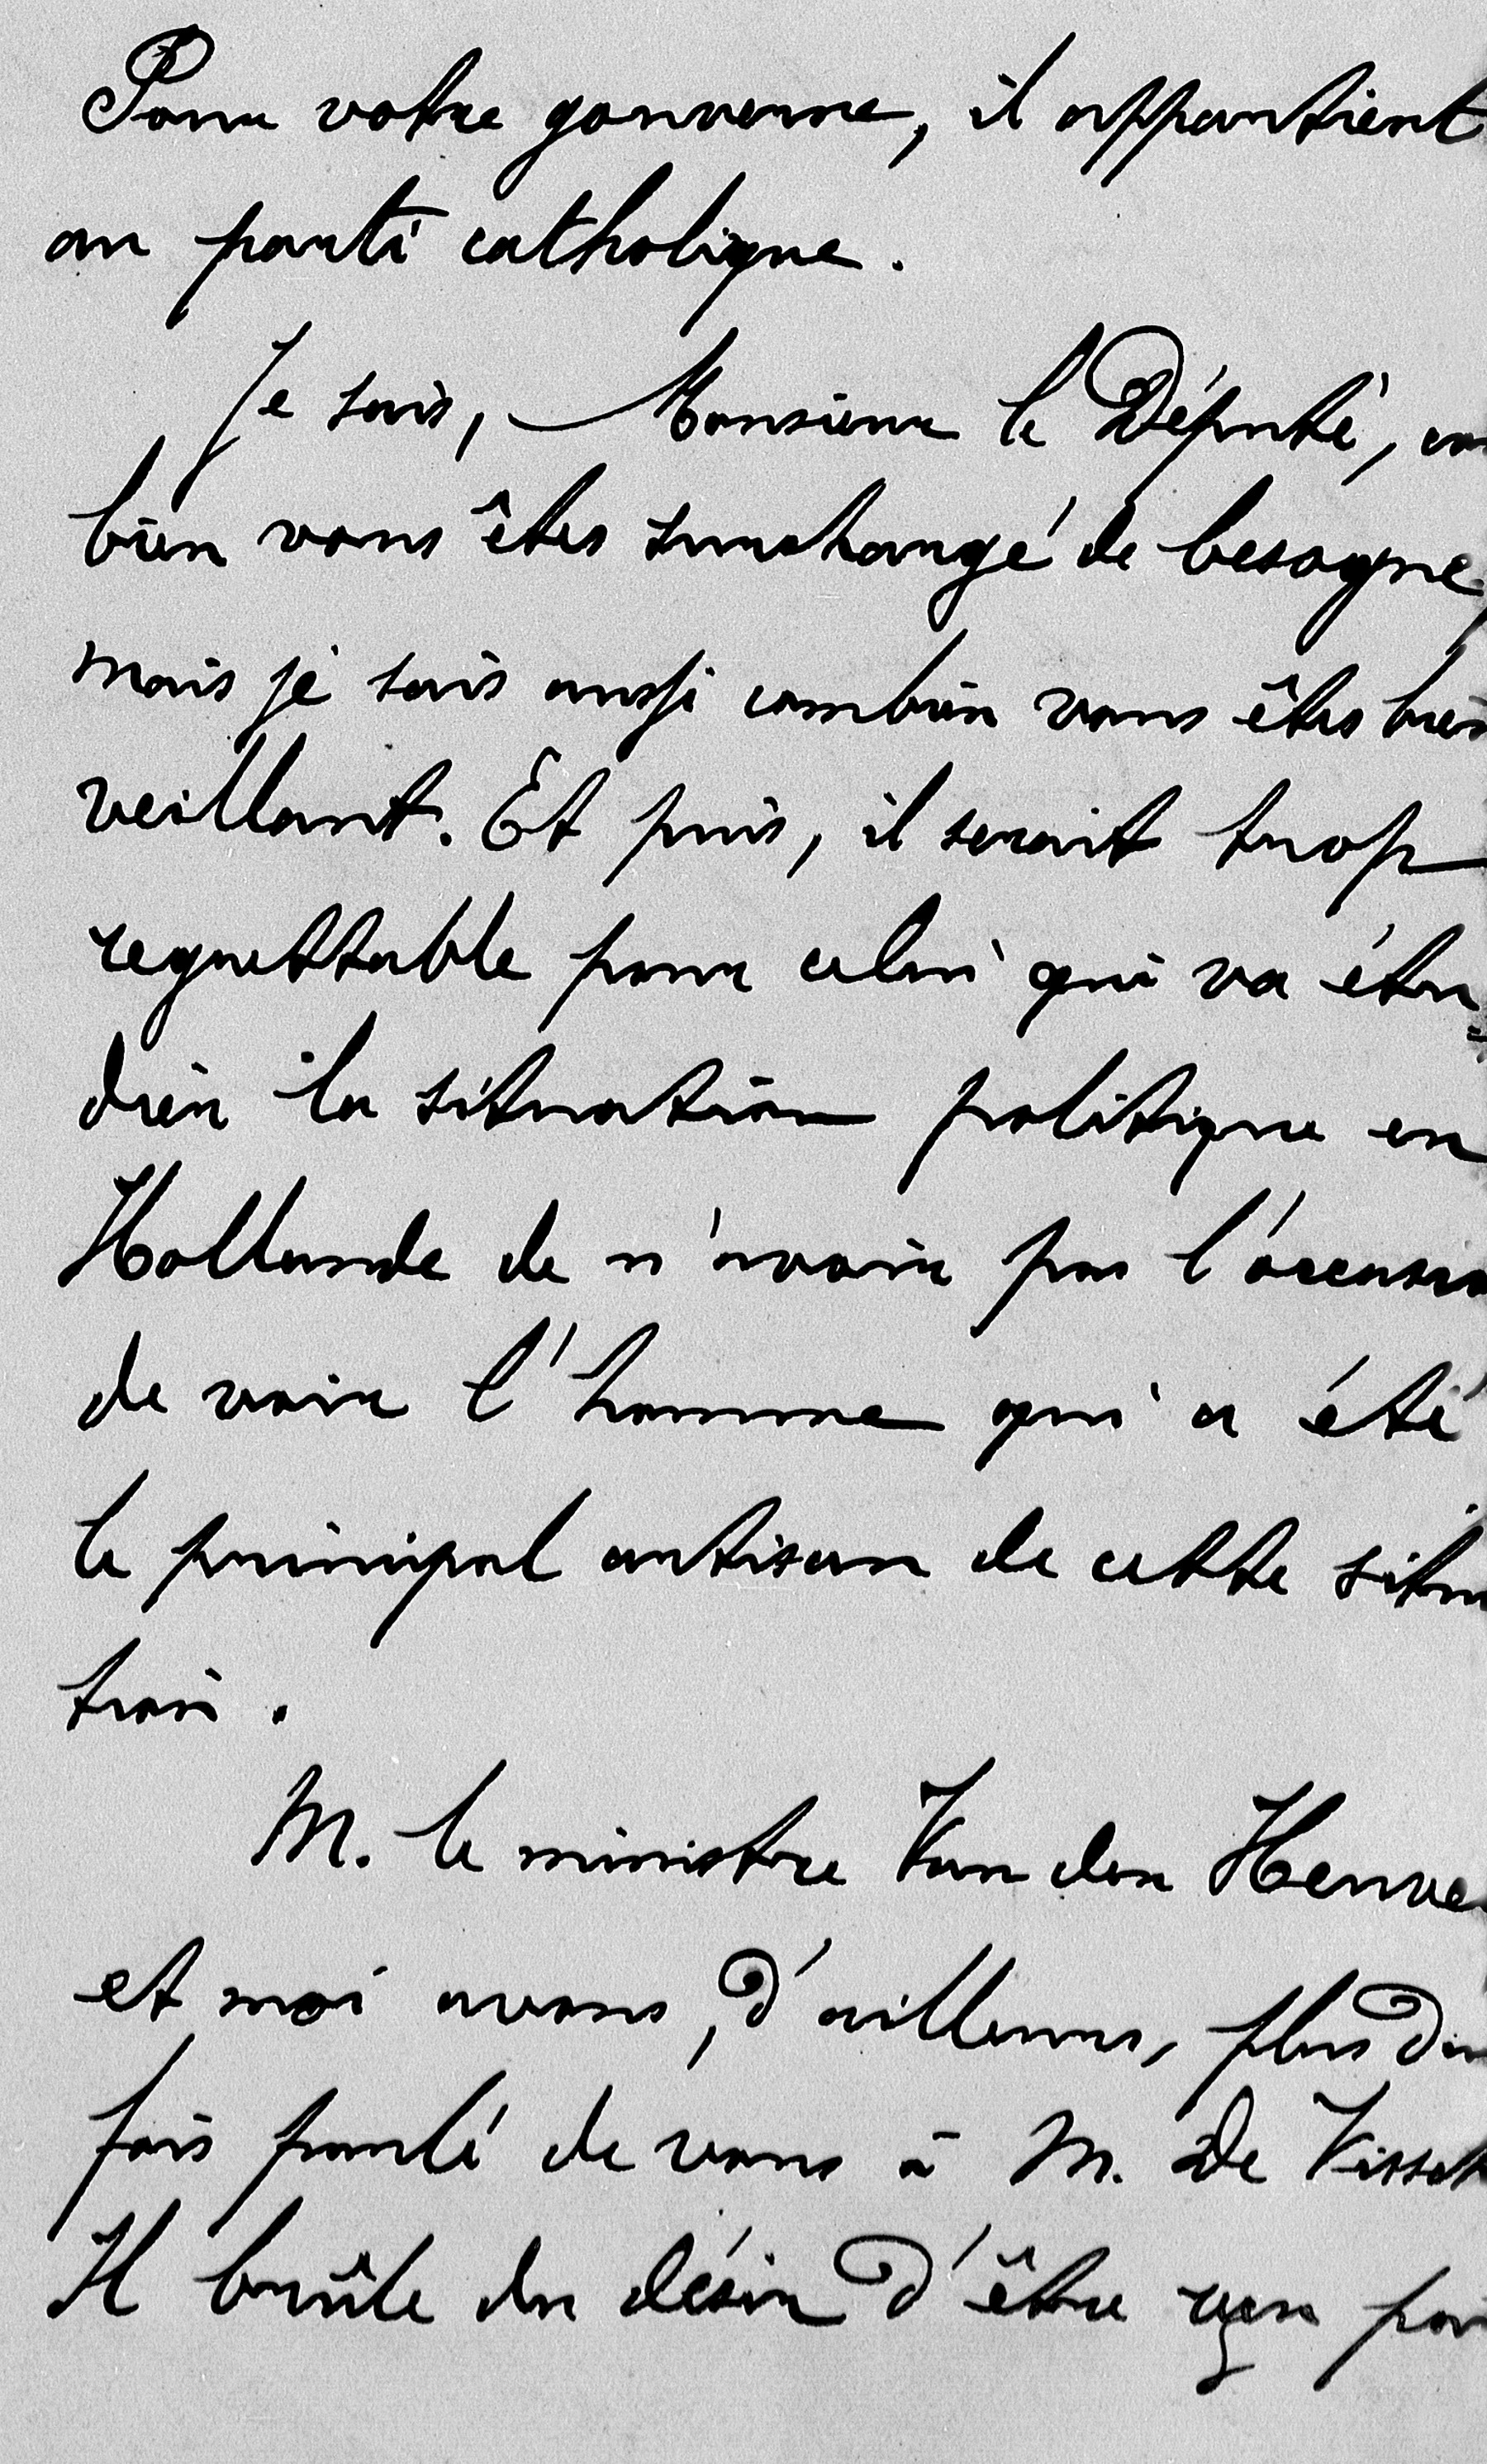 Pour votre gouverne, il appartient
au parti catholique.
Je sais, Monsieur le Député, com
bien vous êtes surchargé de besogne,
mais je sais aussi combien vous êtes bien
veillant. Et puis, il serait trop
regrettable pour celui qui va étu-
dier la situation politique en
Hollande de n'avoir pas l'occasion
de voir l'homme qui a été
le principal artisan de cette situa
tion.
M. le ministre Van den Heuvel
et moi avons, d'ailleurs, plus d'une
fois parlé de vous à M. De Vissch
Il brûle du désir d'être reçu par